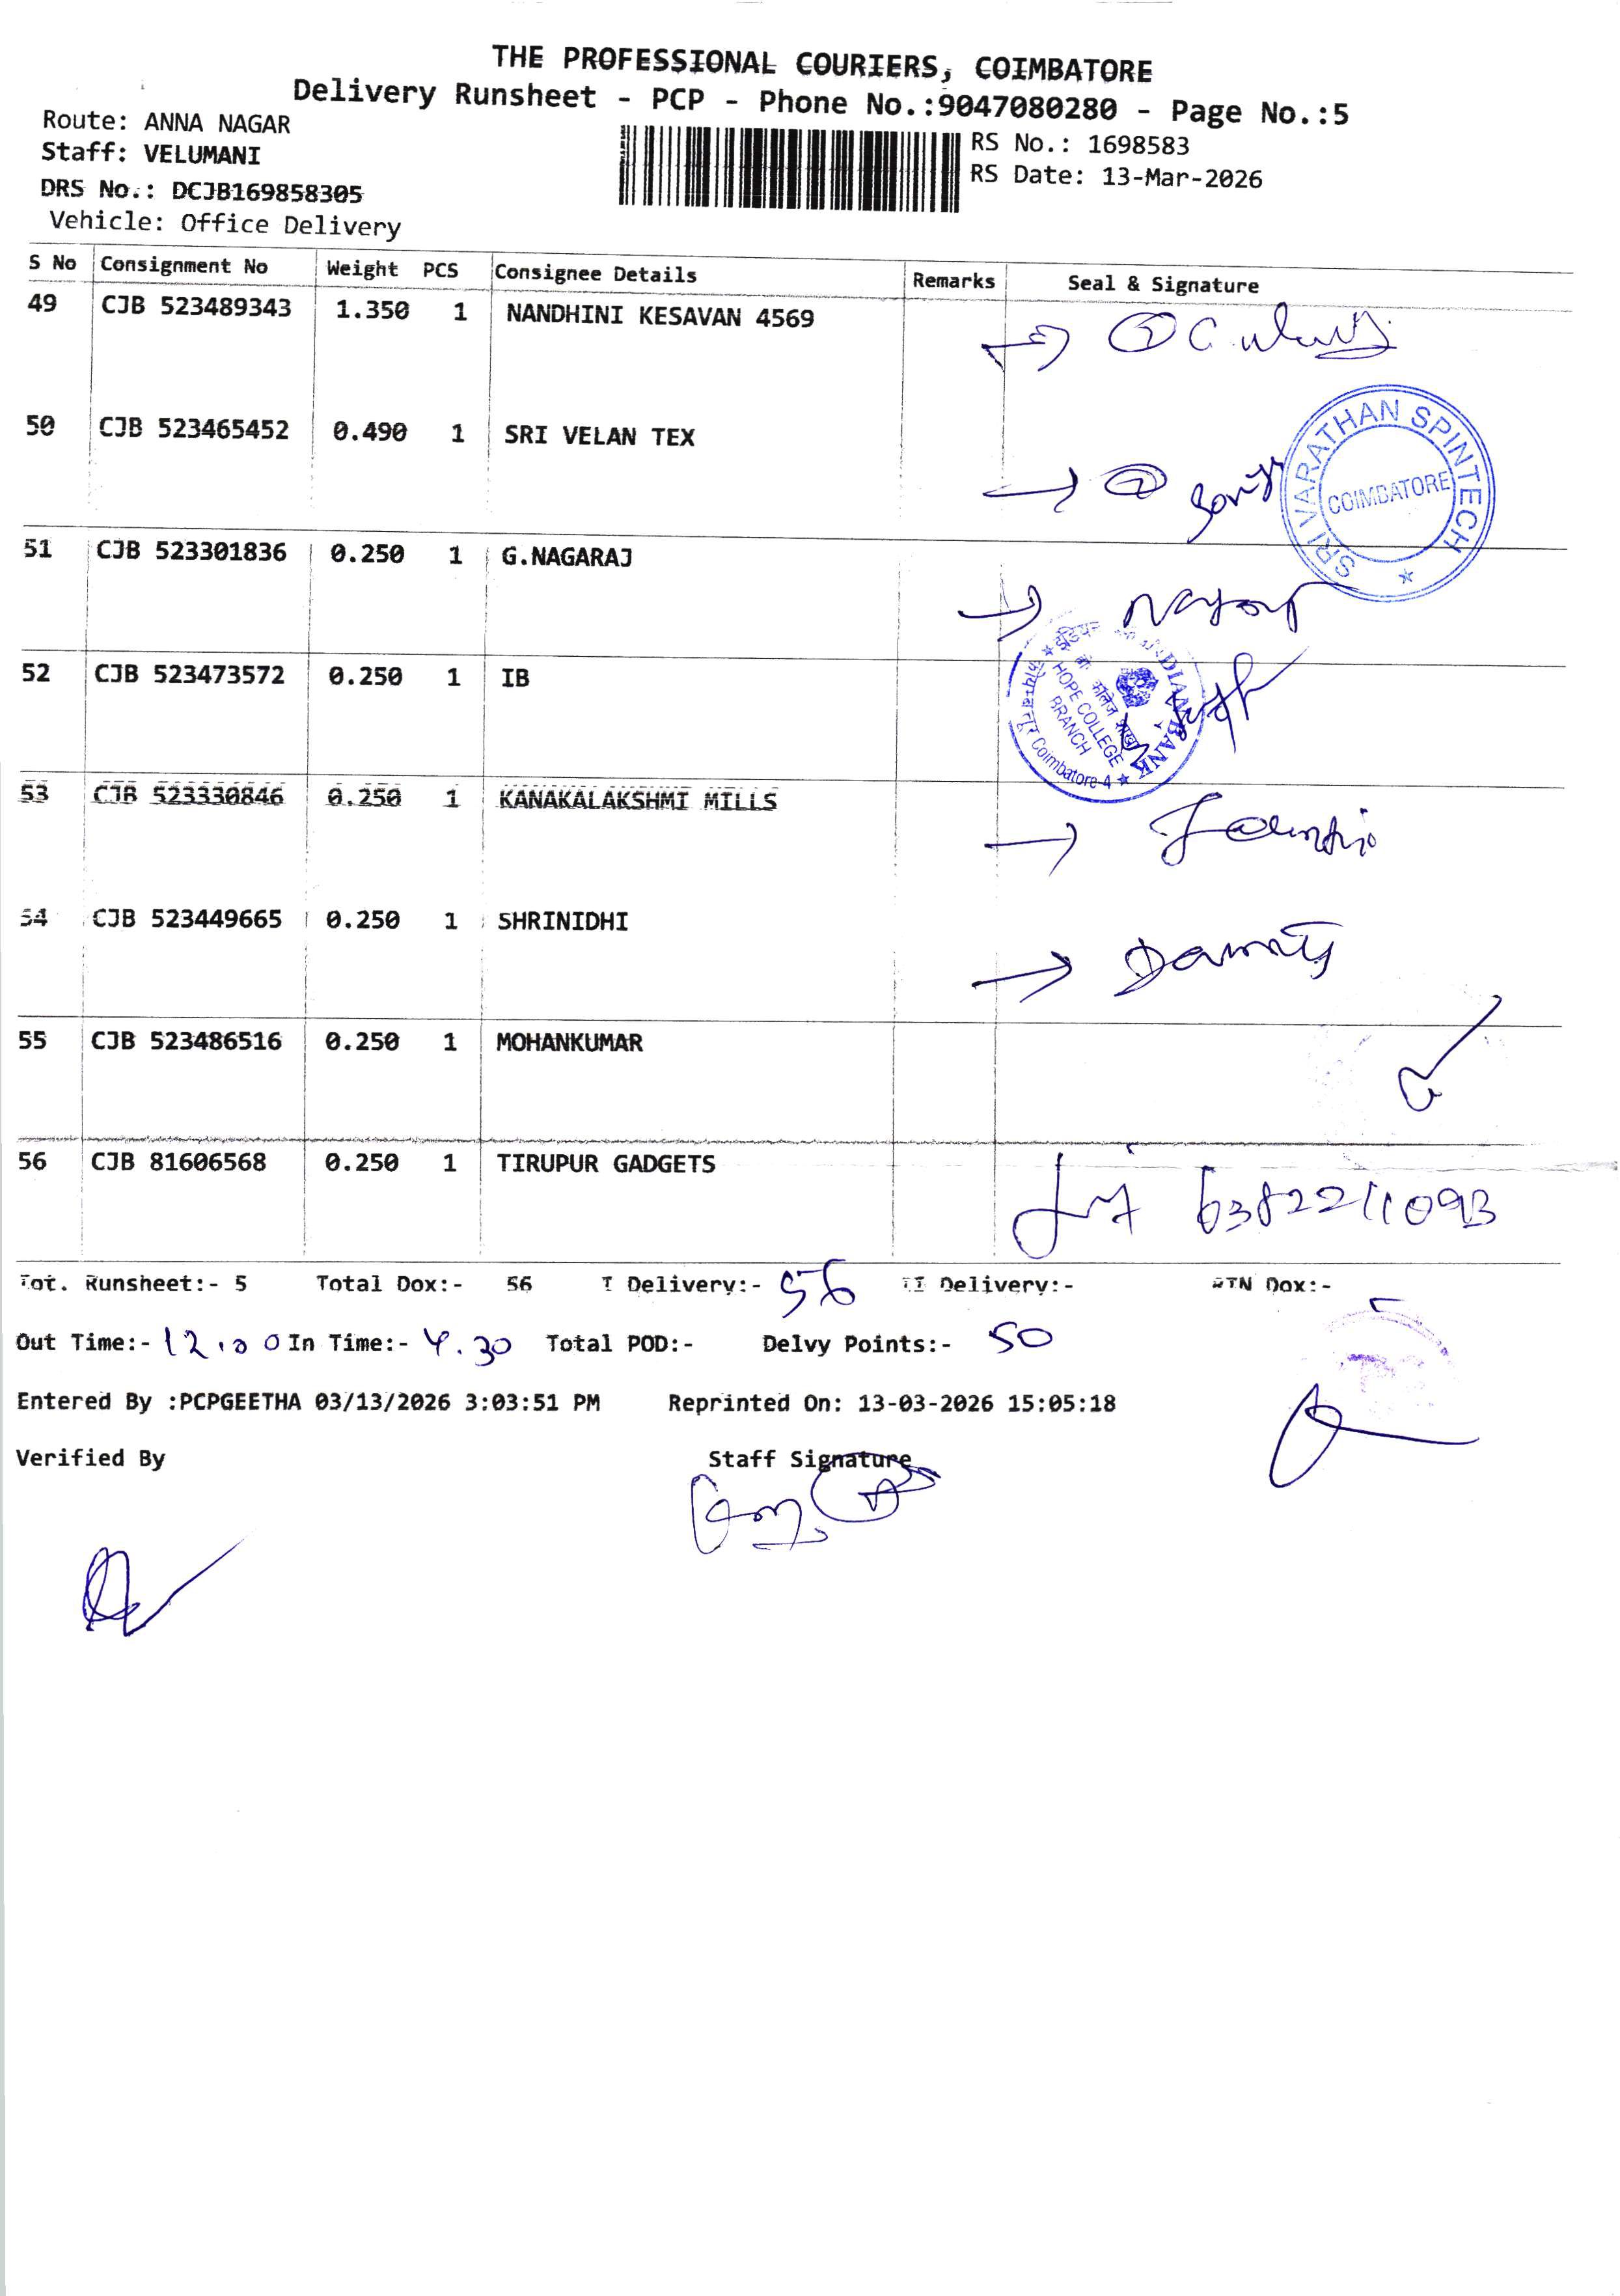 THE PROFESSIONAL COURIERS, COIMBATORE
Delivery Runsheet - PCP - Phone No.:9047080280 - Page No.:5
Route: ANNA NAGAR
Staff: VELUMANI
DRS No.: DCJB169858305
Vehicle: Office Delivery
RS No.: 1698583
RS Date: 13-Mar-2026
S No Consignment No Weight PCS Consignee Details Remarks Seal & Signature
49 CJB 523489343 1.350 1 NANDHINI KESAVAN 4569
50 CJB 523465452 0.490 1 SRI VELAN TEX
SRI VARATHAN SPINTECH
COIMBATORE
51 CJB 523301836 0.250 1 G.NAGARAJ
52 CJB 523473572 0.250 1 IB
INDIAN BANK
HOPE COLLEGE
BRANCH
Coimbatore-4
53 CJB 523330846 0.250 1 KANAKALAKSHMI MILLS
54 CJB 523449665 0.250 1 SHRINIDHI
55 CJB 523486516 0.250 1 MOHANKUMAR
56 CJB 81606568 0.250 1 TIRUPUR GADGETS
6382211093
Tot. Runsheet:- 5 Total Dox:- 56 I Delivery:- 56 II Delivery:- RTN Dox:-
Out Time:- 12.00 In Time:- 4.30 Total POD:- Delvy Points:- 50
Entered By :PCPGEETHA 03/13/2026 3:03:51 PM Reprinted On: 13-03-2026 15:05:18
Verified By Staff Signature